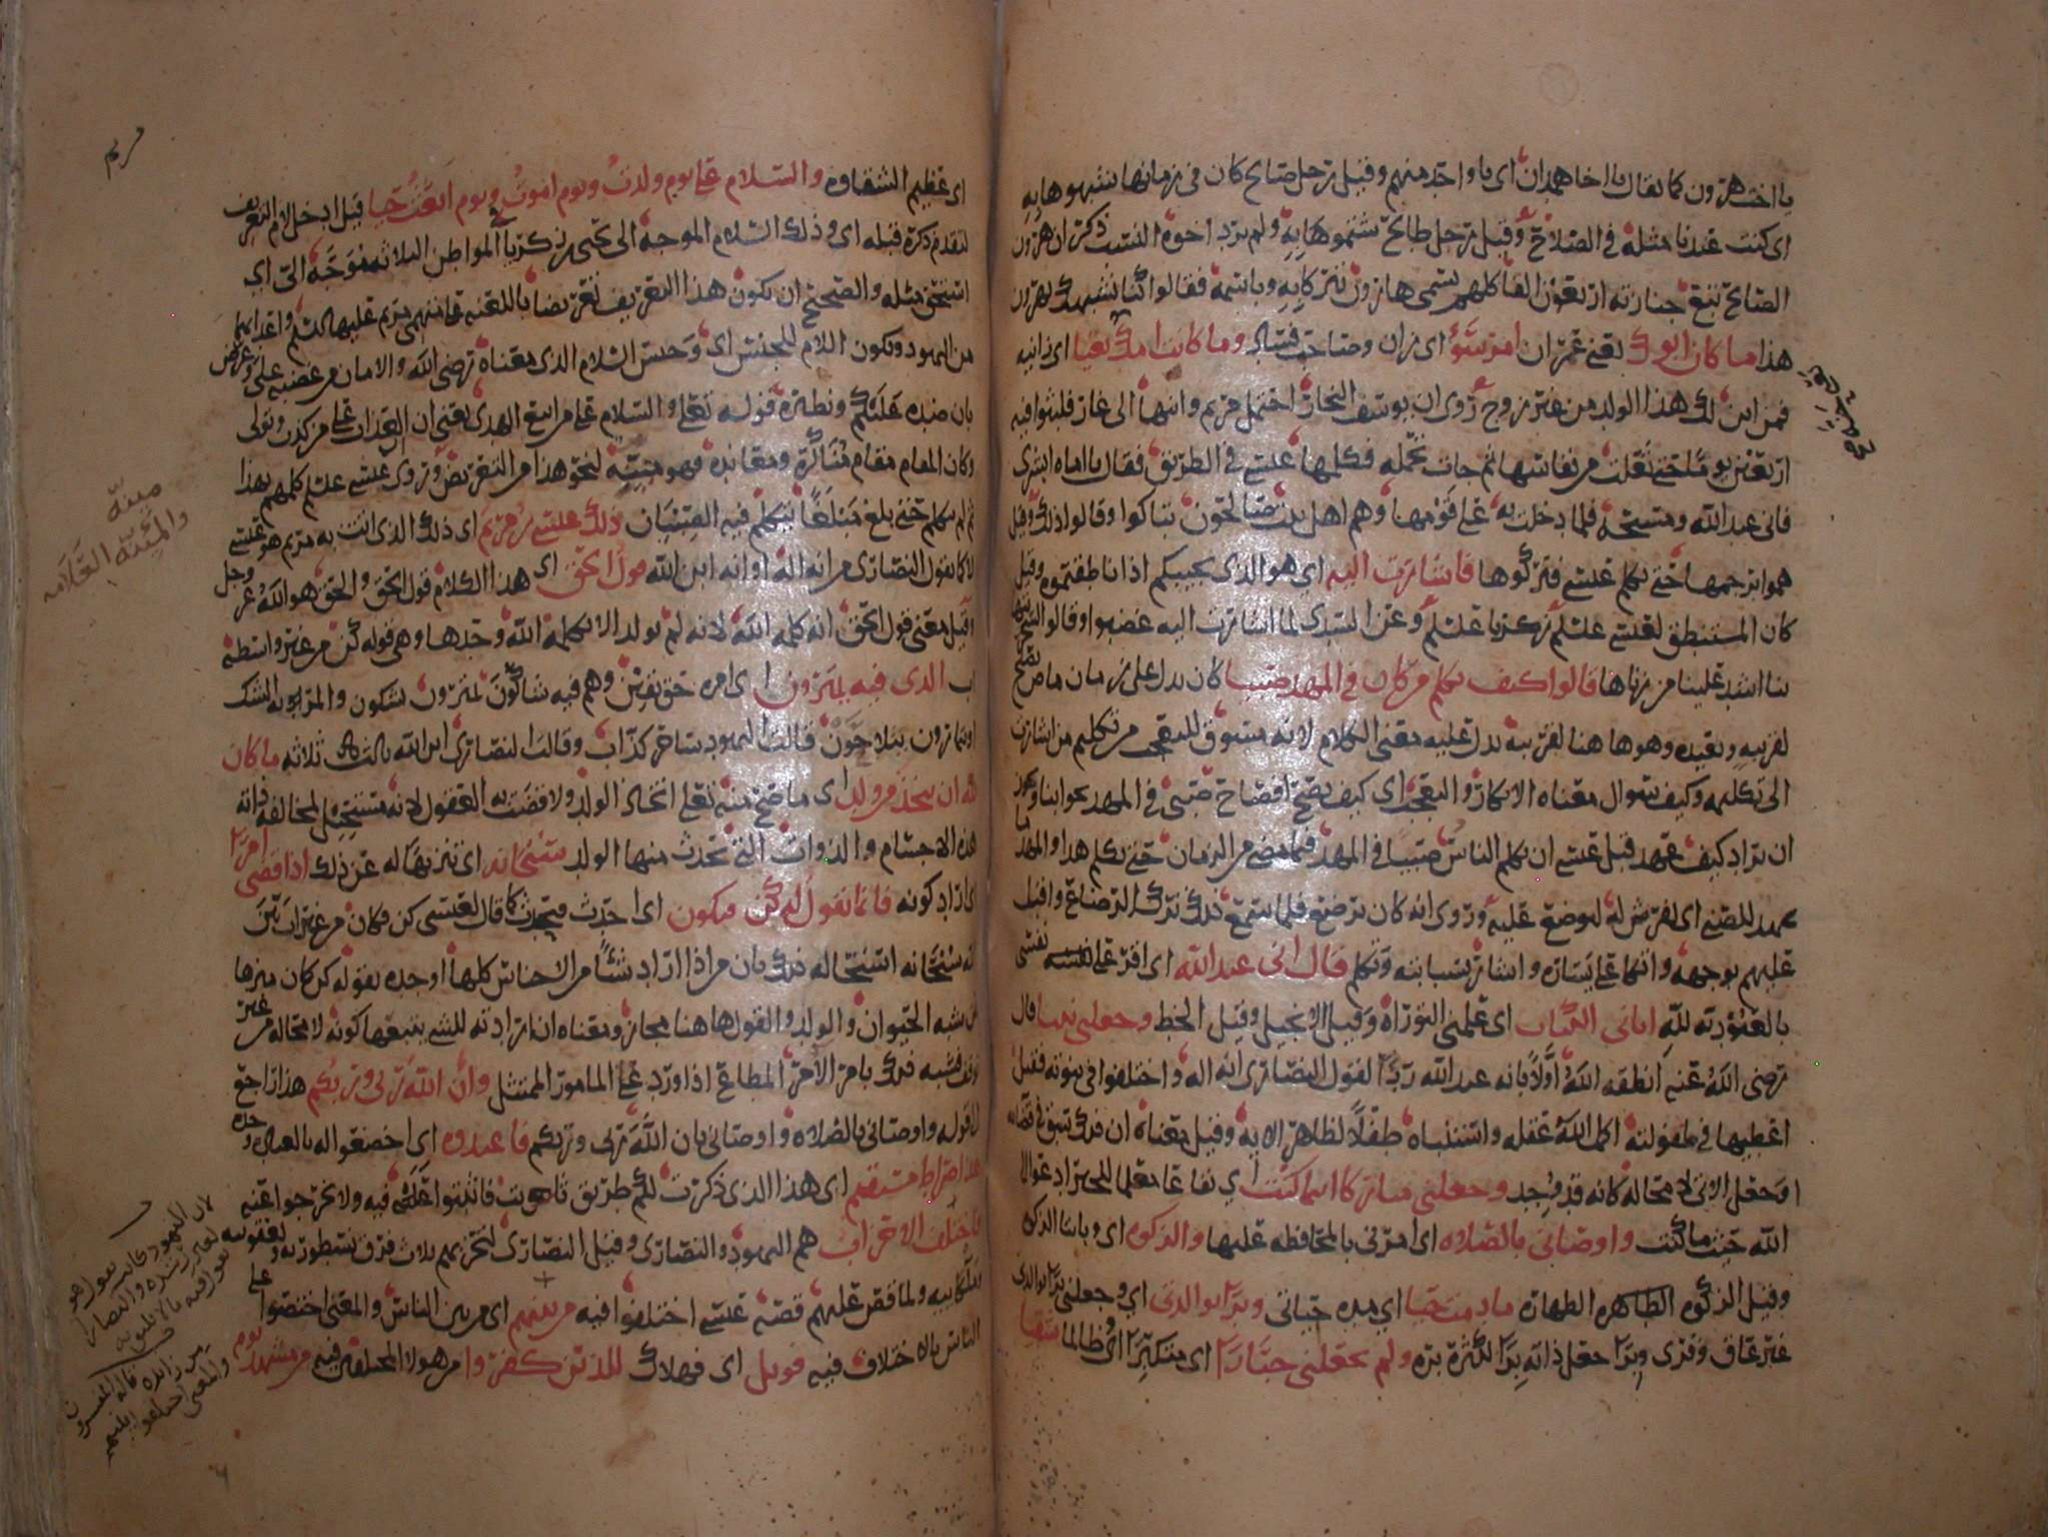 يا اخت هرون كما يقال يا اخا همدان اى يا واحد منهم وقيل رجل صالح كان فى زمانها شبهوها به
اى كنت عندنا مثله فى الصلاح وقيل رجل طالح شتموها به ولم يرد اخوة النسب ذكر ان هرون
الصالح تبع جنازته اربعون الفا كلهم يسمى هارون تبركا به وباسمه فقالوا كنا نشبهك بهرون
هذا ما كان ابوك يعنى عمران امرء سوء اى زان وصاحب فساد وما كانت امك بغيا اى زانيه
فمن اين لك هذا الولد من غير زوج روى ان يوسف النجار احتمل مريم وابنها الى غار فلبثوا فيه
اربعين يوما حتى تعلت من نفاسها ثم جاءت تحمله فكلمها عيسى فى الطريق فقال يا اماه ابشرى
فانى عبد الله ومسيحه فلما دخلت به على قومها وهم اهل بيت صالحون تباكوا وقالوا ذلك وقيل
هموا برجمها حتى تكلم عيسى فتركوها فاشارت اليه اى هو الذى يجيبكم اذا ناطقتموه وقيل
كان المستنطق لعيسى عليلم زكريا عليلم وعن السدى لما اشارت اليه غضبوا وقالوا لسخريتها
بنا اشد علينا من زناها قالوا كيف نكلم من كان فى المهد صبيا كان يدل على زمان ماض
لقريبه وبعيده وهو هاهنا لقريبه يدل عليه معنى الكلام لانه مسوق للتعجب من تكليم من اشارت
الى تكليمه وكيف سوال معناه الانكار والتعجب اى كيف يصح افصاح صبى فى المهد
ان يراد كيف عهد قبل عيسى ان يكلم الناس صبيا فى المهد فيما مضى من الزمان حتى نكلم هذا والمهد ما
يمهد للصبى اى يفرش له ليوضع عليه وروى انه كان يرضع فلما سمع ذلك ترك الرضاع واقبل
عليهم بوجهه واتكا على يساره واشار بسبابته وتكلم قال انى عبد الله اى اقر على نفسى
بالعبودية لله اتانى الكتاب اى علمنى التوراة وقيل الانجيل وقيل الخط وجعلنى نبيا قال
رضى الله عنه انطقه الله اولا بانه عبد الله ردا لقول النصارى انه اله واختلفوا فى نبوته فقيل
اعطيها فى طفوليته اكمل الله عقله واستنباه طفلا لظاهر الايه وقيل معناه ان ذلك سبق فى قضائه
او جعل الاتى لا محاله كانه قد وجد وجعلنى مباركا اينما كنت اى نفاعا معلما للخير ادعو الى
الله حيث ما كنت واوصانى بالصلاه اى امرنى بالمحافظه عليها والزكوه اى وبايتا الزكوه
وقيل الزكوه الطاهره الطهاره ما دمت حيا اى مده حياتى وبرا بوالدتى اى وجعلنى برا بوالدتى
غير عاق وقرى وبرا جعل ذاته برا لكثرة بره ولم يجعلنى جبارا اى متكبرا او ظالما شقيا
اى عظيم الشقاوه والسلام على يوم ولدت ويوم اموت ويوم ابعث حيا قيل ادخل لام التعريف
لتقدم ذكره قبله اى وذلك السلام الموجه الى يحيى بن زكريا فى المواطن الثلاثه موجه الى اى
استحق مثله والصحيح ان يكون هذا التعريف تعريضا باللعنه على متهمى مريم عليها السلم واعدائها
من اليهود ويكون اللام للجنس اى وجنس السلام الذى معناه رضى الله والامان من غضبه على وعرض
بان ضده عليكم ونظيره قوله تعلى والسلام على من اتبع الهدى يعنى ان العذاب على من كذب وتولى
وكان المقام مقام مناكرة ومعانده فهو مئنة لنحو هذا من التعريض وروى عيسى عليلم كلمهم بهذا
ثم لم يكلم حتى بلغ مبلغا يتكلم فيه الصبيان ذلك عيسى بن مريم اى ذلك الذى اتت به مريم هو عيسى
لا كما يقول النصارى من انه اله او انه ابن الله قول الحق اى هذا الكلام قول الحق والحق هو الله عز وجل
وقيل معنى قول الحق انه كلمه الله لانه لم يولد الا بكلمة الله وحدها وهى قوله كن من غير واسطة
اب الذى فيه يمترون اى امره حق يقين وهم فيه شاكون يمترون يشكون والمريه الشك
او يمارون يتلاحون قالت اليهود ساحر كذاب وقالت النصارى ابن الله ثالث ثلاثه ما كان
لله ان يتخذ من ولد اى ما صح منه تعلى اتخاذ الولد ولا قضت به العقول لانه مستحيل لمخالفه ذاته
هذه الاجسام والذوات التى تحدث منها الولد سبحانه اى تنزيها له عن ذلك اذا قضى امرا
اى اراد كونه فانما يقول له كن فيكون اى احدث فيحدث كما قال لعيسى كن فكان من غير اب بين
انه سبحانه استحاله ذلك بان من اذا اراد شيئا من الاجناس كلها اوجده بقوله كن كان منزها
من شبه الحيوان والولد والقول هاهنا مجاز ومعناه ان ارادته للشى يتبعها كونه لا محاله من غير
توقف فشبه ذلك بامر الامر المطاع اذا ورد على المامور الممتثل وان الله ربى وربكم هذا راجع
الى قوله واوصانى بالصلاه واوصانى بان الله ربى وربكم فاعبدوه اى اخضعوا له بالعباده وحده
هذا صراط مستقيم اى هذا الذى ذكرت لكم طريق فاثبتوا عليه ولا تخرجوا عنه
فاختلف الاحزاب هم اليهود والنصارى وقيل النصارى لتحزبهم ثلاث فرق نسطوريه ويعقوبيه
وملكانيه ولما قص عليهم قصة عيسى اختلفوا فيه من بينهم اى من بين الناس والمعنى اختصوا على
الناس بالاختلاف فيه فويل اى فهلاك للذين كفروا من هولا المختلفين فيه من مشهد يوم
مريم
مئنة
والمئنة العلامه
لان اليهود قالت
والنصارى
زائده قاله المفسرون
والمعنى اختلفوا بينهم